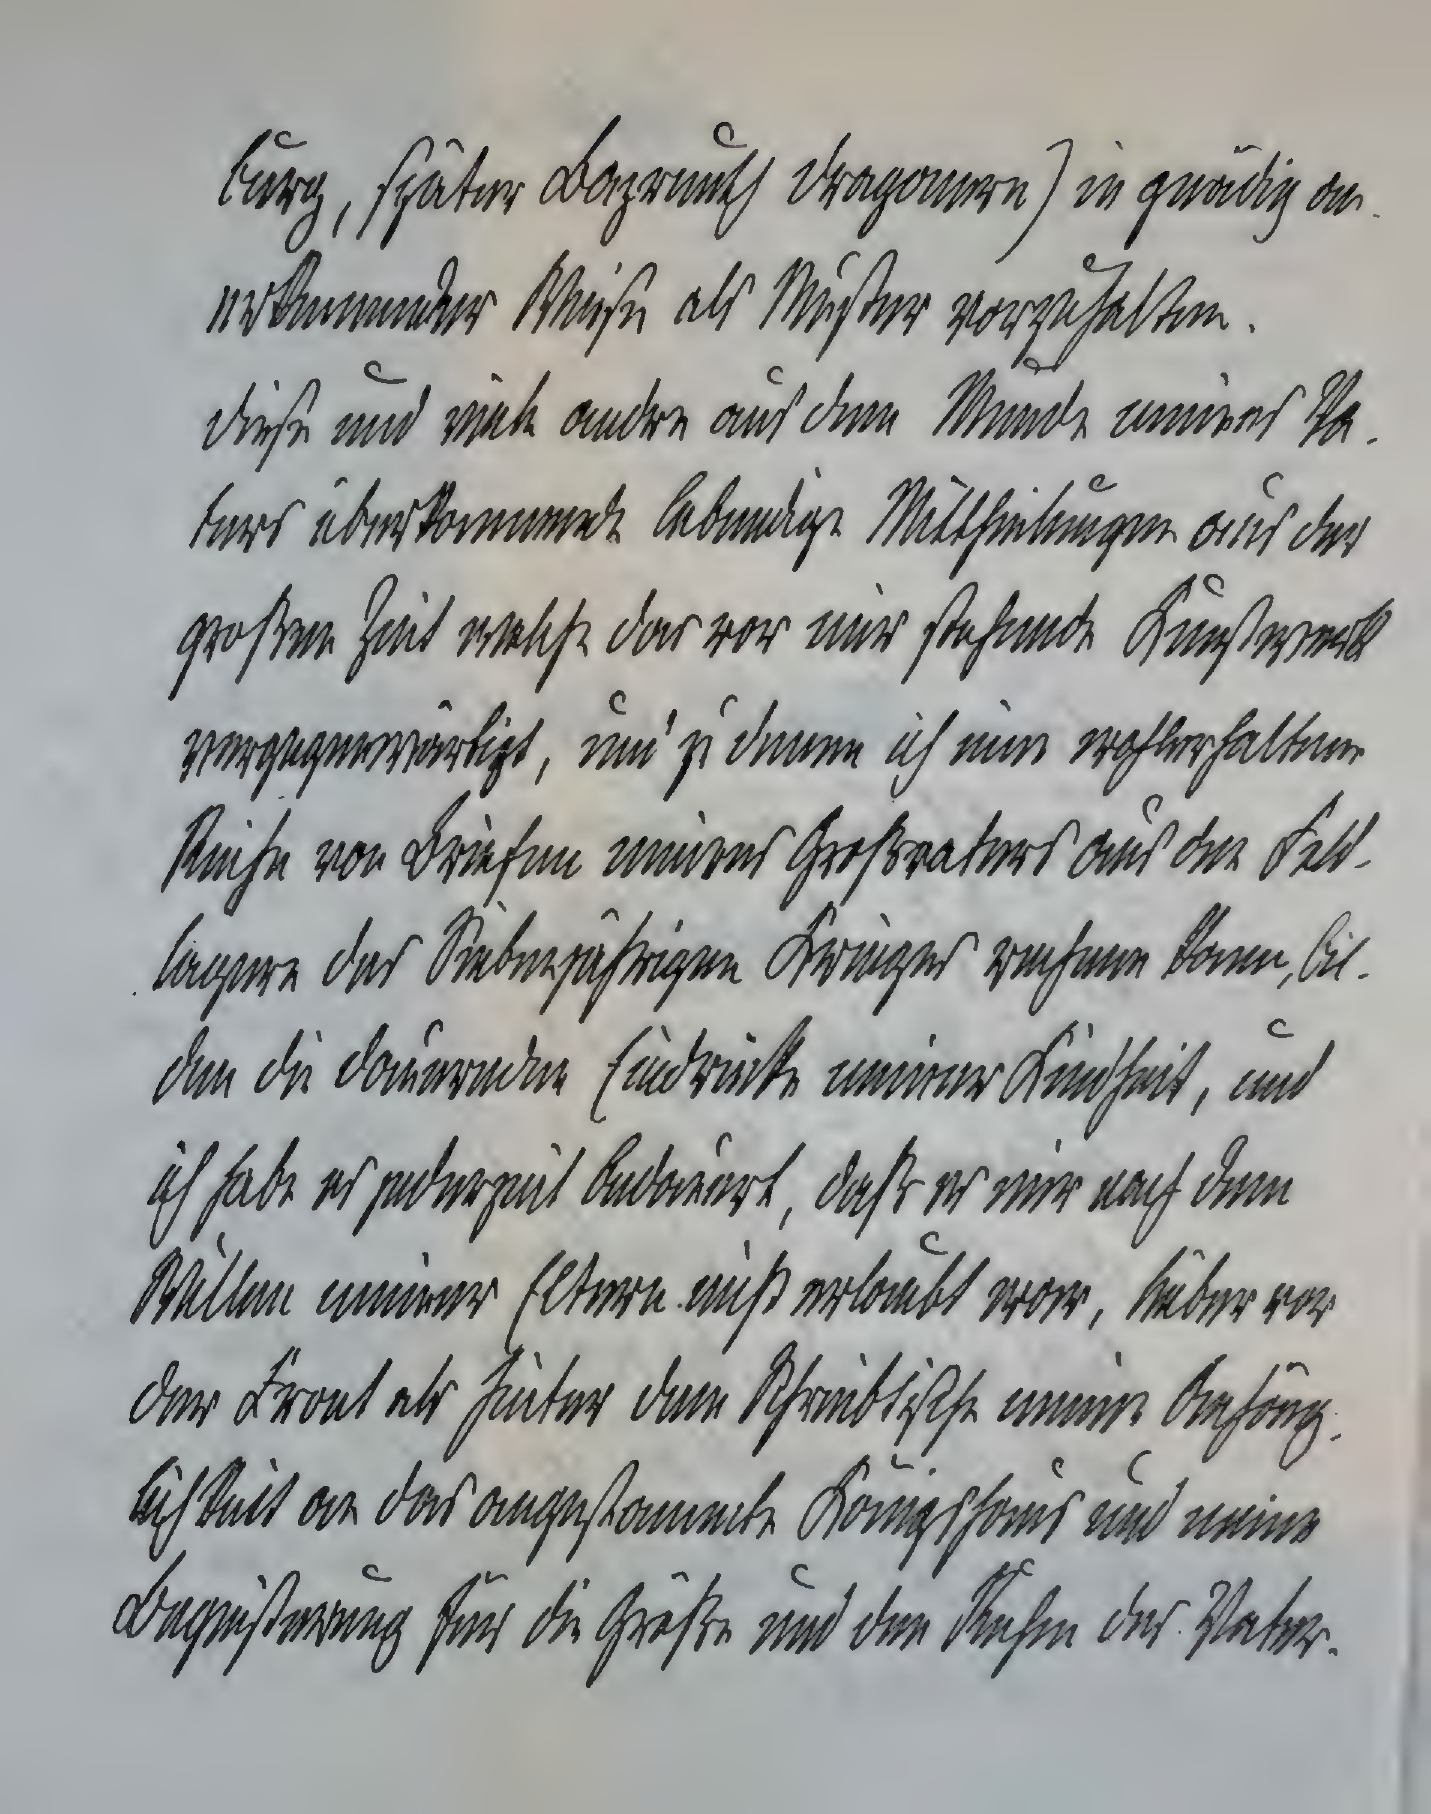 burg, später Bayreuth Dragonern) in gnädig an-
erkennender Weise als Muster vorzuhalten.
Diese und viele andre aus dem Munde meines Va-
ters überkommende lebendige Mittheilungen aus der
großen Zeit welche das vor mir stehende Kunstwerk
vergegenwärtigt, und zu denen ich eine wohlerhaltene
Reihe von Briefen meines Großvaters aus den Feld-
lagern des Siebenjährigen Krieges rechnen kann, bil-
den die dauernden Eindrücke meiner Kindheit, und
ich habe es jederzeit bedauert, daß es mir nach dem
Willen meiner Eltern nicht erlaubt war, lieber vor
der Front als hinter dem Schreibtische meine Anhäng-
lichkeit an das angestammte Königshaus und meine
Begeisterung für die Größe und den Ruhm des Vater-